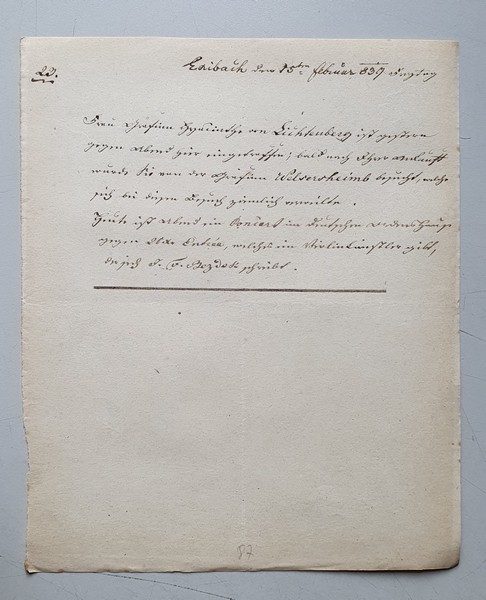 23.
Laibach den 15ten Februar 839 Freytag
Frau Gräfinn Hyacinthe von Lichtenberg ist gestern
gegen Abend hier eingetroffen; bald nach Ihrer Ankunft
wurde Sie von der Gräfinn Welsersheimb besucht, welche
sich bei diesem Besuch ziemlich verweilte.
Heute ist Abend ein Concert im deutschen Ordenshause
gegen Entrée, welches ein Violinkünstler gibt,
der sich schreibt.
87